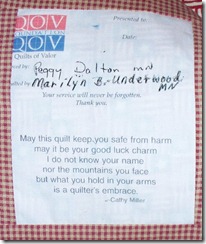 QOV
FOUNDATION
QOV
Presented to:
Date:
Quilts of Valor
Peggy Dalton MN
Marilyn B. Underwood
MN
Your service will never be forgotten.
Thank you.
May this quilt keep you safe from harm
may it be your good luck charm
I do not know your name
nor the mountains you face
but what you hold in your arms
is a quilter's embrace.
- Cathy Miller